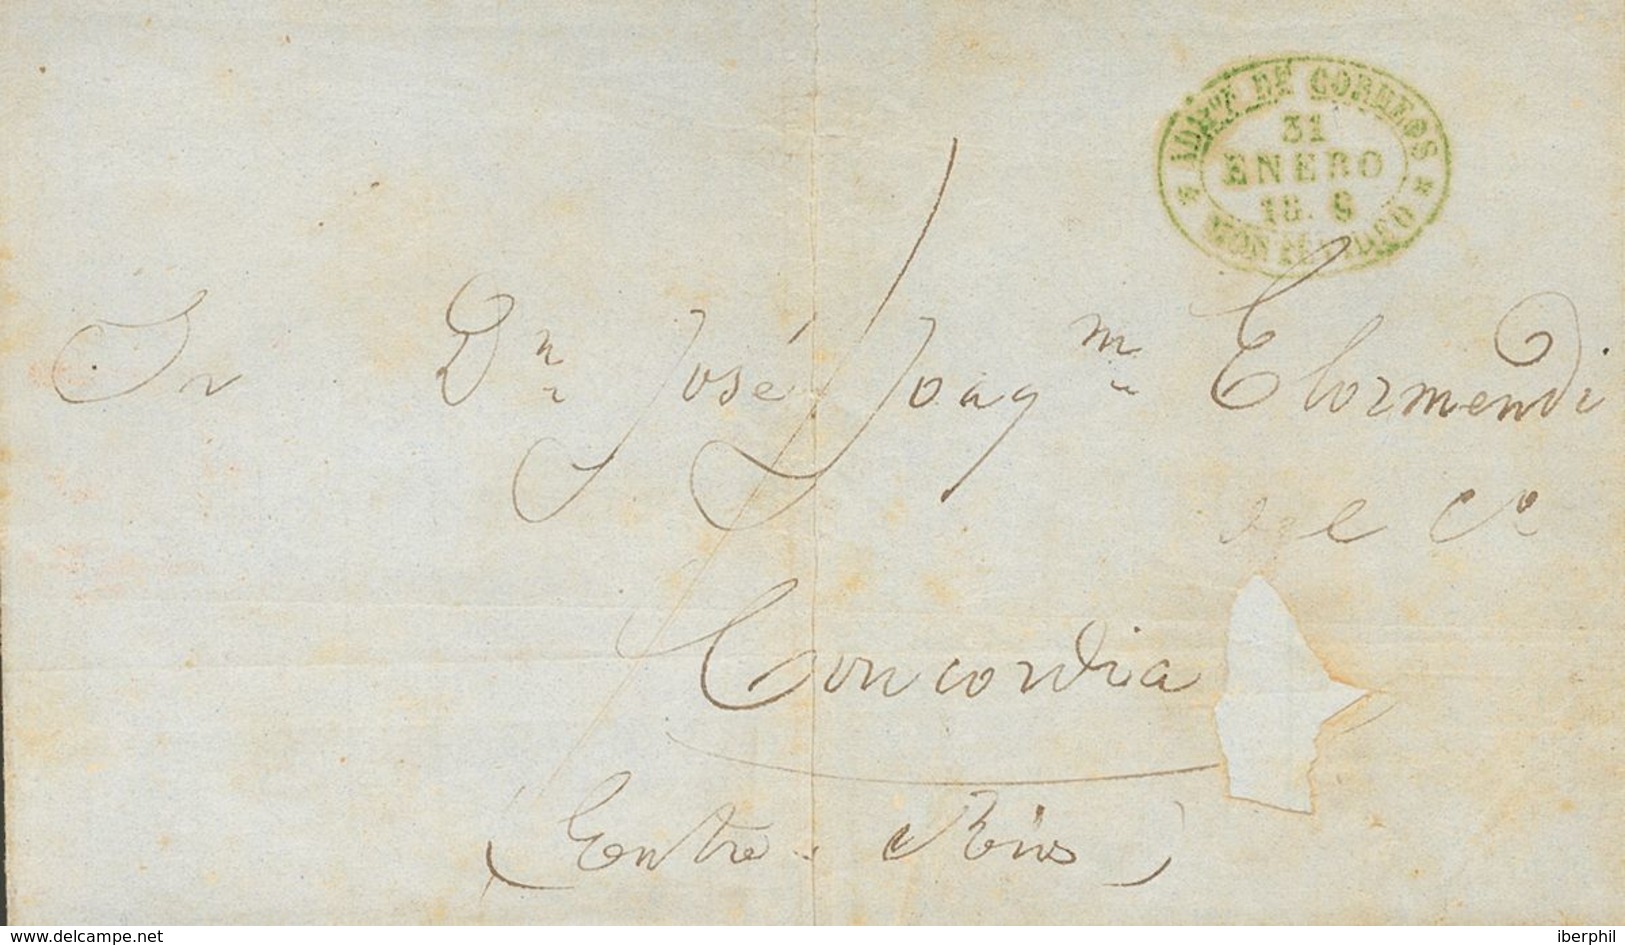 ADMON DE CORREOS
31
ENERO
18. 9
MONTEVIDEO
Sr Dn José Joaqm Elormendi
e Ca
Concordia
(Entre Rios)
www.delcampe.net
iberphil